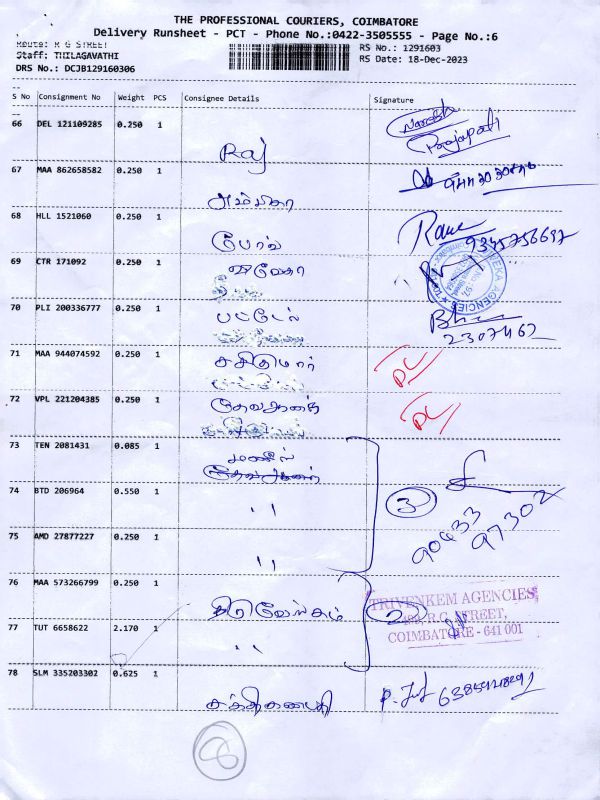 THE PROFESSIONAL COURIERS, COIMBATORE
Delivery Runsheet - PCT - Phone No.:0422-3505555 - Page No.:6
Route: R G STREET
RS No.: 1291603
Staff: THILAGAVATHI
RS Date: 18-Dec-2023
DRS No.: DCJB129160306
S No Consignment No Weight PCS Consignee Details Signature
66 DEL 121109285 0.250 1
Raj
Naresh
Prajapati
67 MAA 862658582 0.250 1
அம்பிகா
68 HLL 1521060 0.250 1
9345756697
69 CTR 171092 0.250 1
AGENCIES
70 PLI 200336777 0.250 1
பட்டேல்
2307462
71 MAA 944074592 0.250 1
சசிகுமார்
DL
72 VPL 221204385 0.250 1
DL
73 TEN 2081431 0.085 1
74 BTD 206964 0.550 1
" 3
90433
97302
75 AMD 27877227 0.250 1
"
76 MAA 573266799 0.250 1
திருவேங்கடம் 2
TRIVENKEM AGENCIES
R.G. STREET,
COIMBATORE - 641 001
77 TUT 6658622 2.170 1
"
78 SLM 335203302 0.625 1
சக்திகணபதி
8